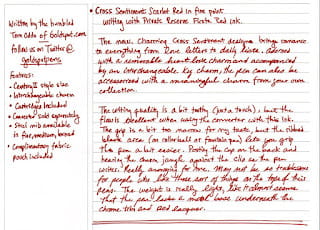 Written by the humbled
Tom Oddo of Goldspot.com
follow us on Twitter@
goldspotpens
Features:
• Century II style size
• Interchangeable charm
• Cartridges Included
• Converter sold separately
• Steel nib available
in fine, medium, broad
• Complimentary fabric
pouch included
• Cross Sentiment Scarlet Red in fine point
writing with Private Reserve Pirate Red ink.
The new, Charming Cross Sentiment designs brings romance
to everything from love letters to daily lists. Adorned
with a removable heart-love charm and accompanied
by an interchangeable key charm, the pen can also be
accessorized with a meaningful charm from your own
collection.
The writing quality is a bit toothy (just a touch), but the
flow is excellent when using the converter with this ink.
The grip is a bit too narrow for my taste, but the ribbed
black area (on rollerball or fountain pen) lets you grip
the pen a bit easier. Posting the cap on the back and
hearing the charm jangle against the clip as the pen
writes really annoying for me. May not be as troublesome
for people who like those sort of things on the top of their
pens. The weight is really light, like it almost seems
that the pen lacks a metal base underneath the
chrome trim and red lacquer.